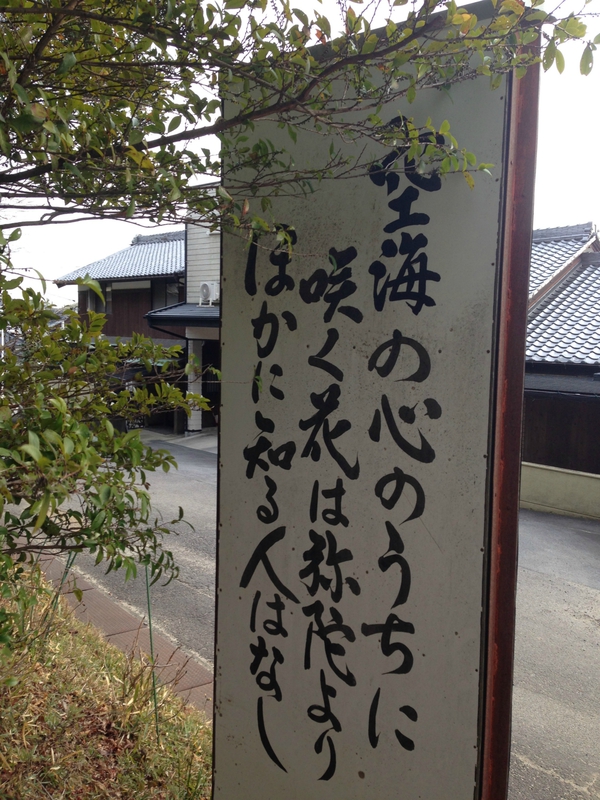 空海の心のうちに
咲く花は弥陀より
ほかに知る人はなし